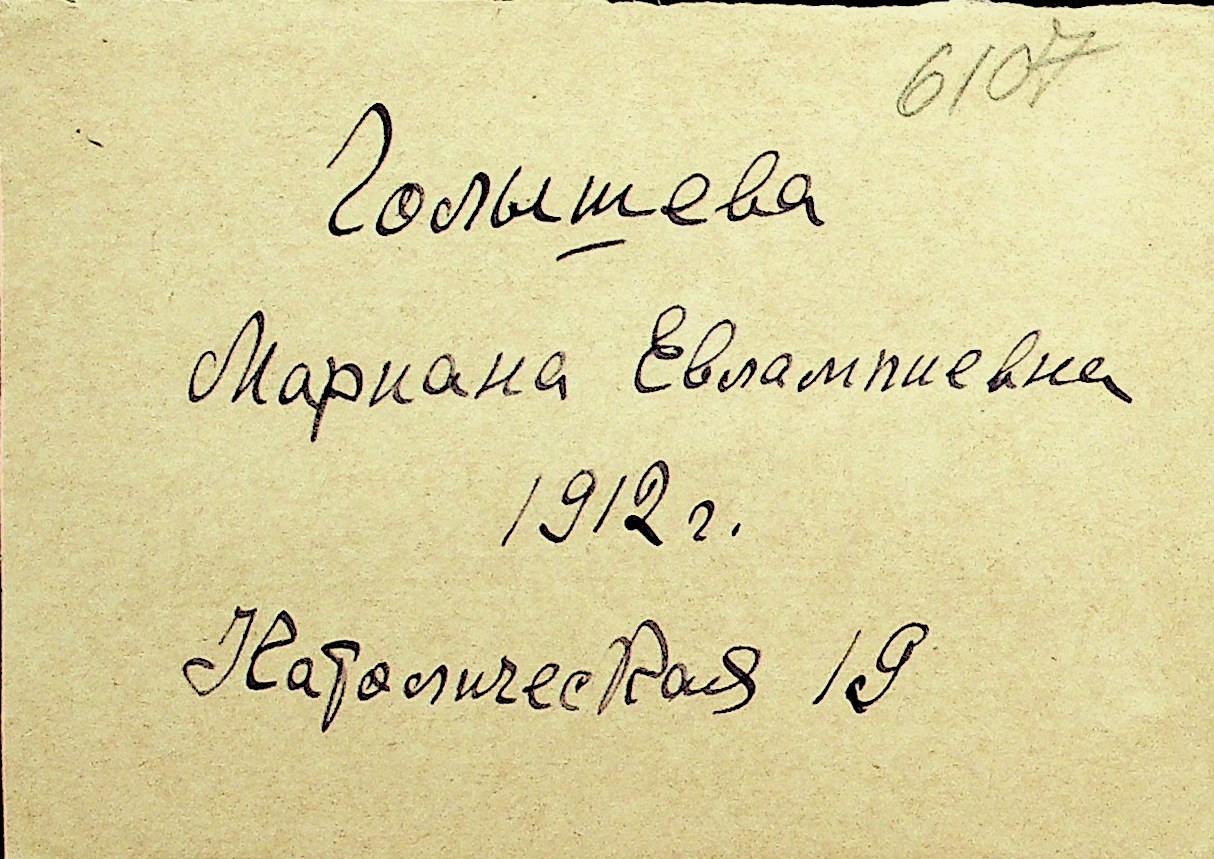 6107
Голышева
Мариана Евлампиевна
1912 г.
Католическая 19